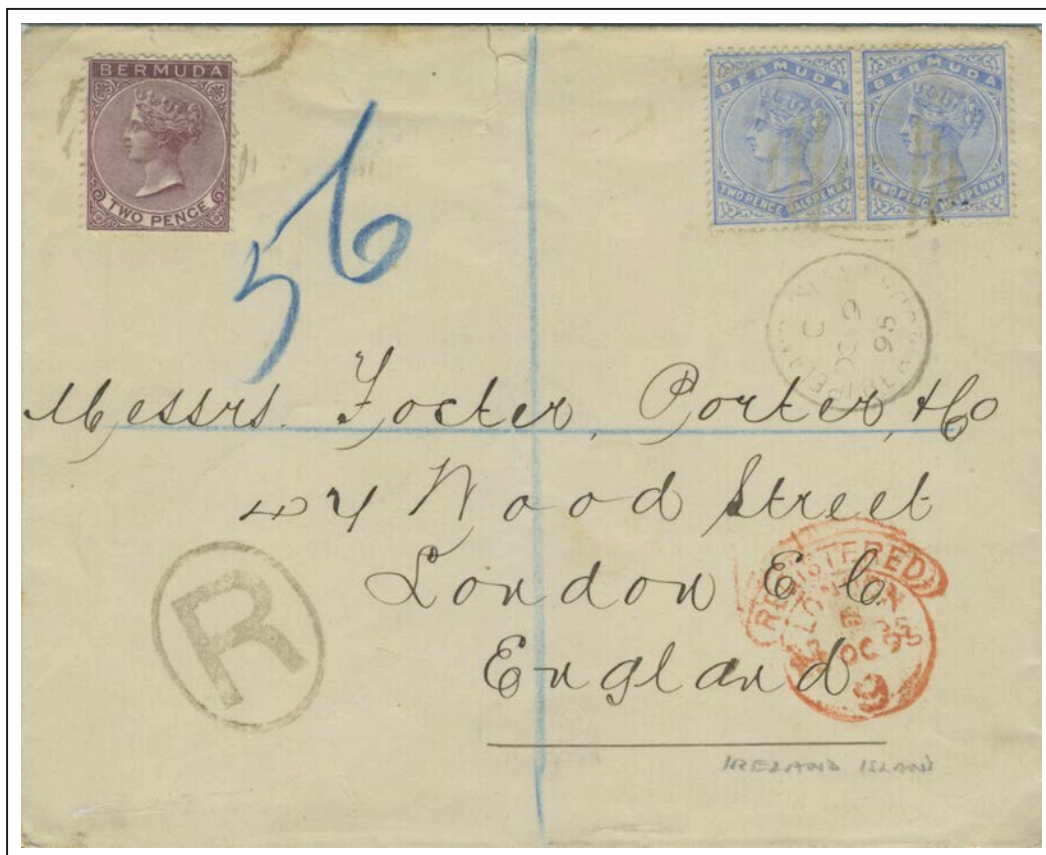 BERMUDA
TWO PENCE
BERMUDA BERMUDA
TWO PENCE HALFPENNY TWO PENCE HALFPENNY
56
C
OC 9
95
Messrs. Foster, Porter, & Co
44 Wood Street
London E C
England
R
REGISTERED
LONDON
OC 95
9
IRELAND ISLAND